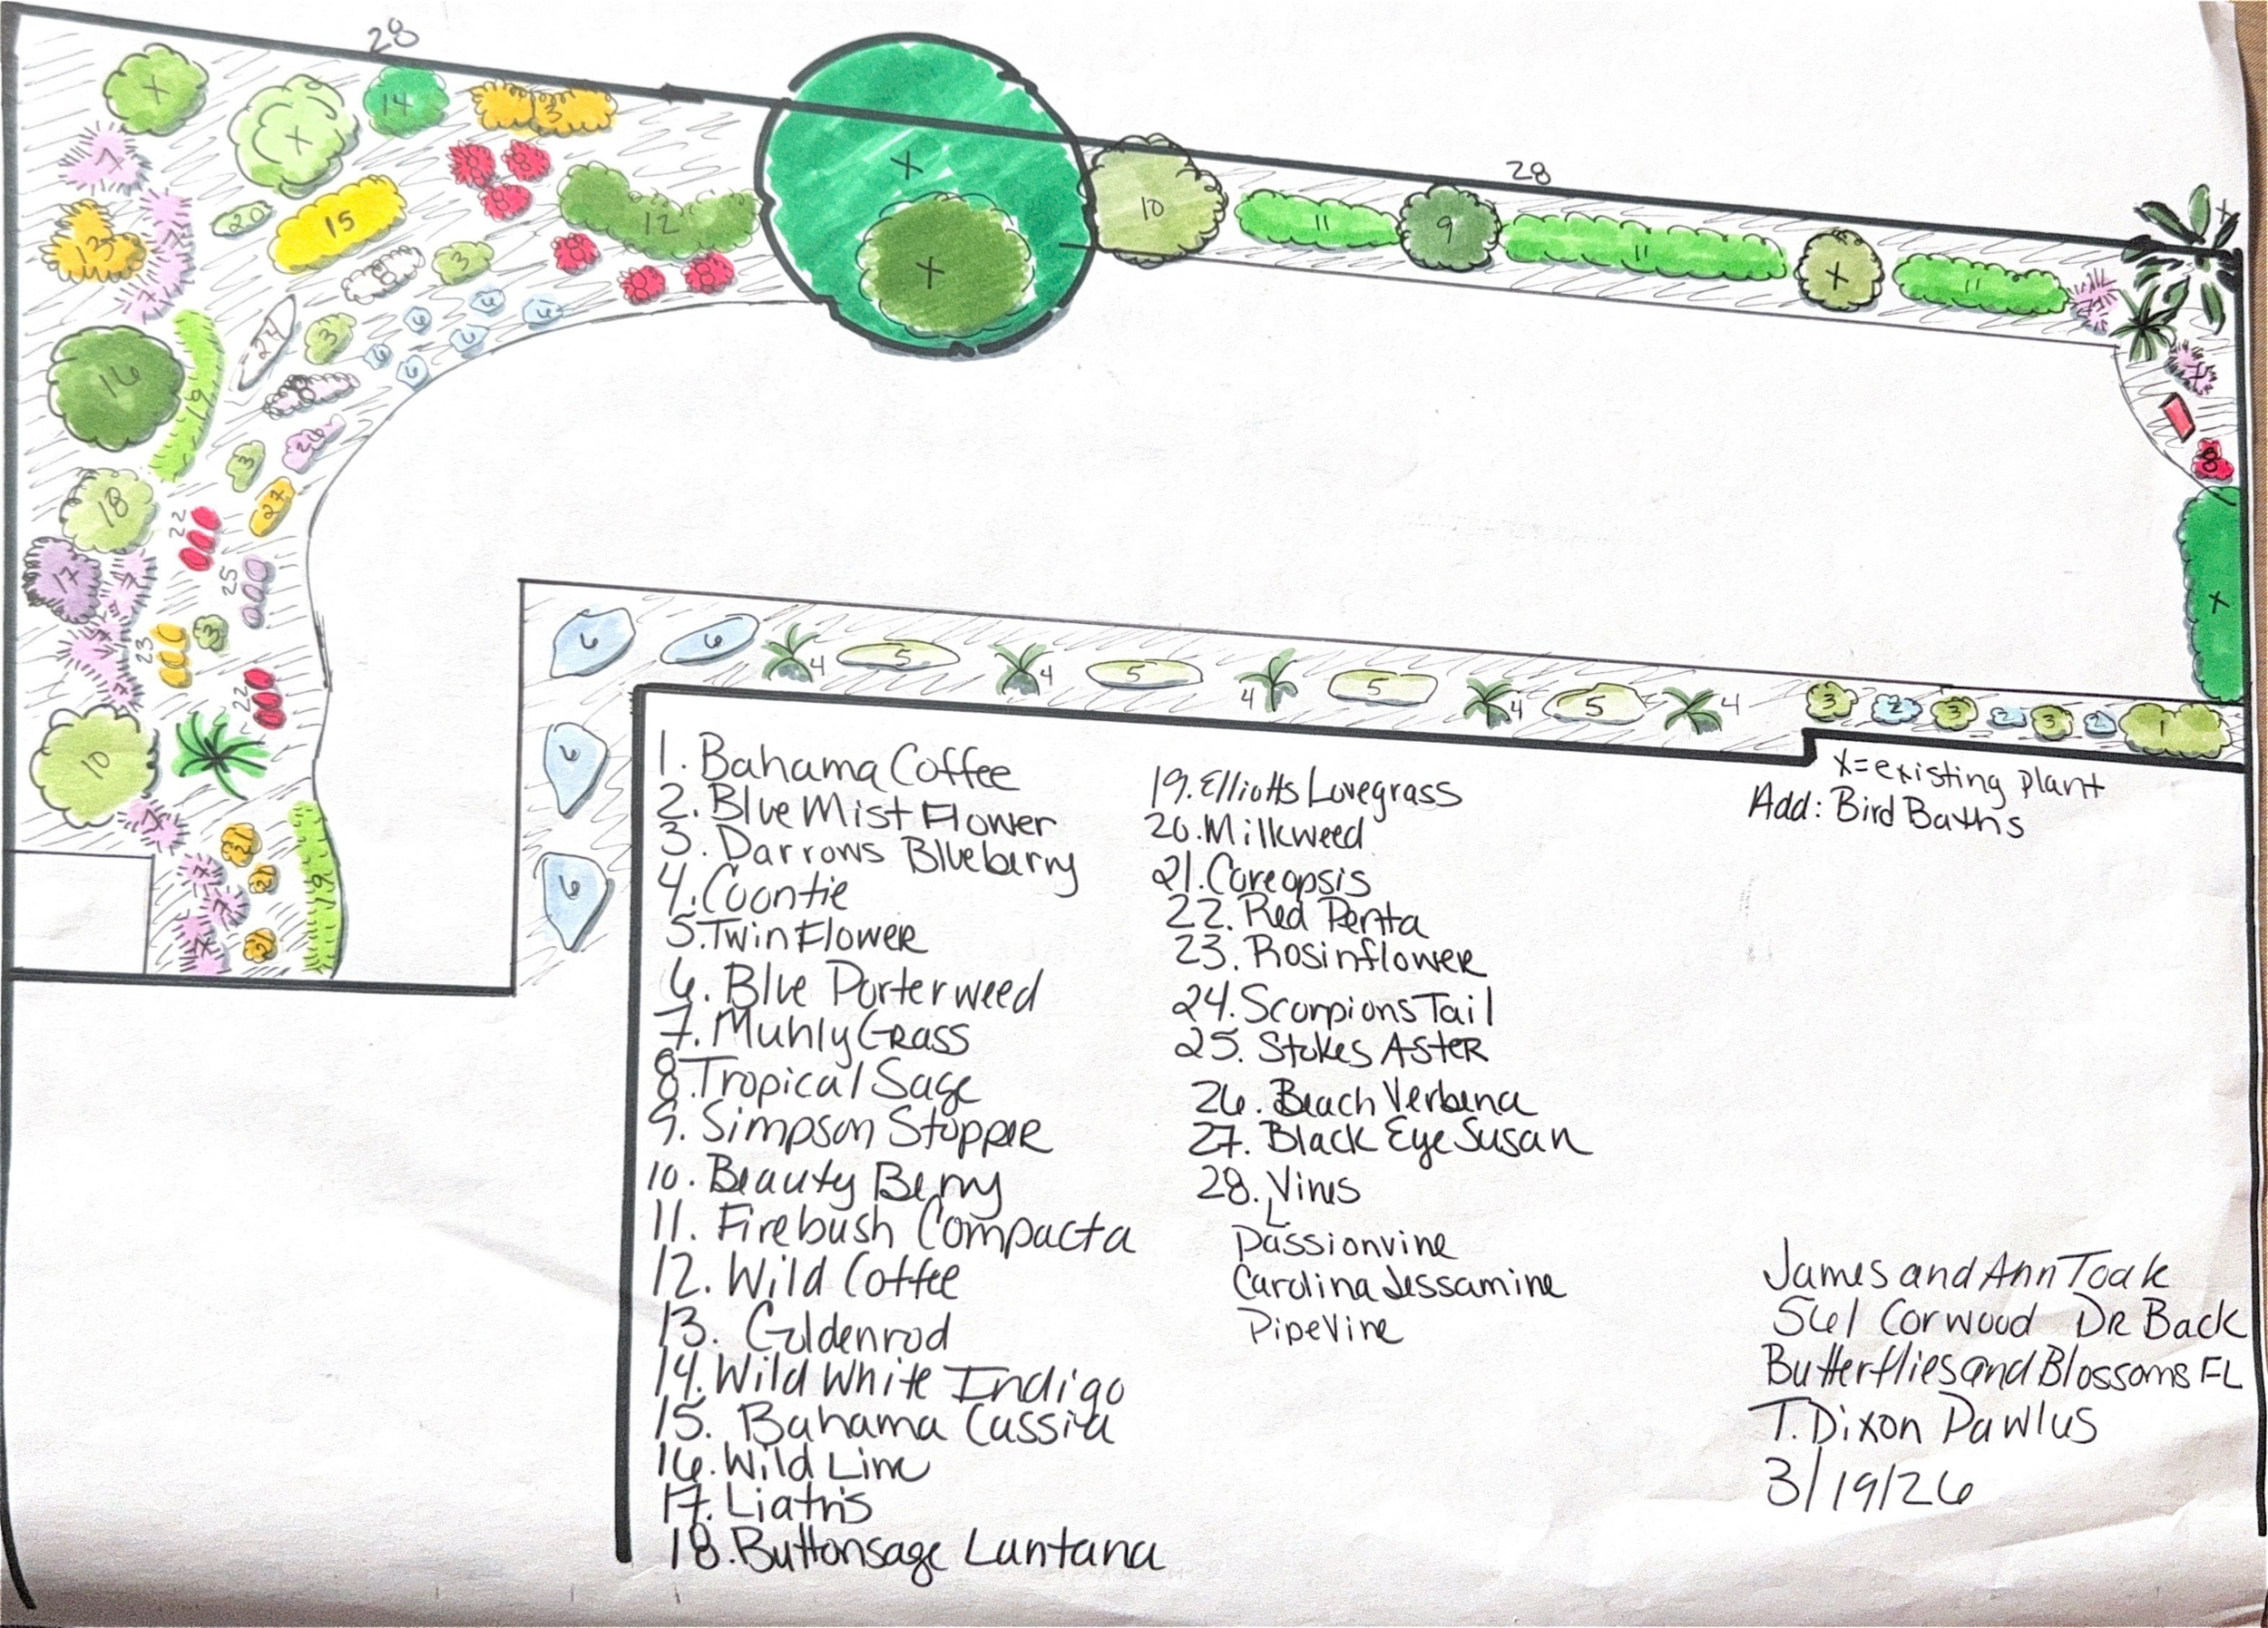 28
28
X
X
14
3
7
7
13
7
20
15
8
3
8
8
8
12
X
X
10
11
9
11
X
11
7
X
X
8
X
16
19
24
3
6
6
6
6
6
6
8
26
3
18
22
27
17
7
25
23
3
7
7
22
10
7
21
7
21
7
19
7
21
6
6
4
5
4
5
4
5
4
5
4
3
2
3
2
3
2
1
6
6
1. Bahama Coffee
2. Blue Mist Flower
3. Darrows Blueberry
4. Coontie
5. Twin Flower
6. Blue Porterweed
7. Muhly Grass
8. Tropical Sage
9. Simpson Stopper
10. Beauty Berry
11. Firebush Compacta
12. Wild Coffee
13. Goldenrod
14. Wild White Indigo
15. Bahama Cassia
16. Wild Lime
17. Liatris
18. Buttonsage Lantana
19. Elliotts Lovegrass
20. Milkweed
21. Coreopsis
22. Red Penta
23. Rosinflower
24. Scorpions Tail
25. Stokes Aster
26. Beach Verbena
27. Black Eye Susan
28. Vines
Passionvine
Carolina Jessamine
Pipevine
X=existing plant
Add: Bird Baths
James and Ann Toak
561 Corwood Dr Back
Butterflies and Blossoms FL
T. Dixon Pawlus
3/19/26